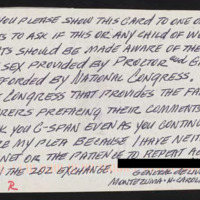 YOU PLEASE SHOW THIS CARD TO ONE O
TS TO ASK IF THIS OR ANY CHILD OF W
TS SHOULD BE MADE AWARE OF THE
SEX PROVIDED BY PROCTOR and G
FORDED BY NATIONAL CONGRESS.
CONGRESS THAT PROVIDES THE FA
URERS PREFACING THEIR COMMENTS
K YOU C-SPAN EVEN AS YOU CONTINUE
RE MY PLEA BECAUSE I HAVE NEIT
NET OR THE PATIENCE TO REPEAT AC
THE 202 EXCHANGE. GENERAL DELIV
MONTEZUMA-N-CAROLI
R